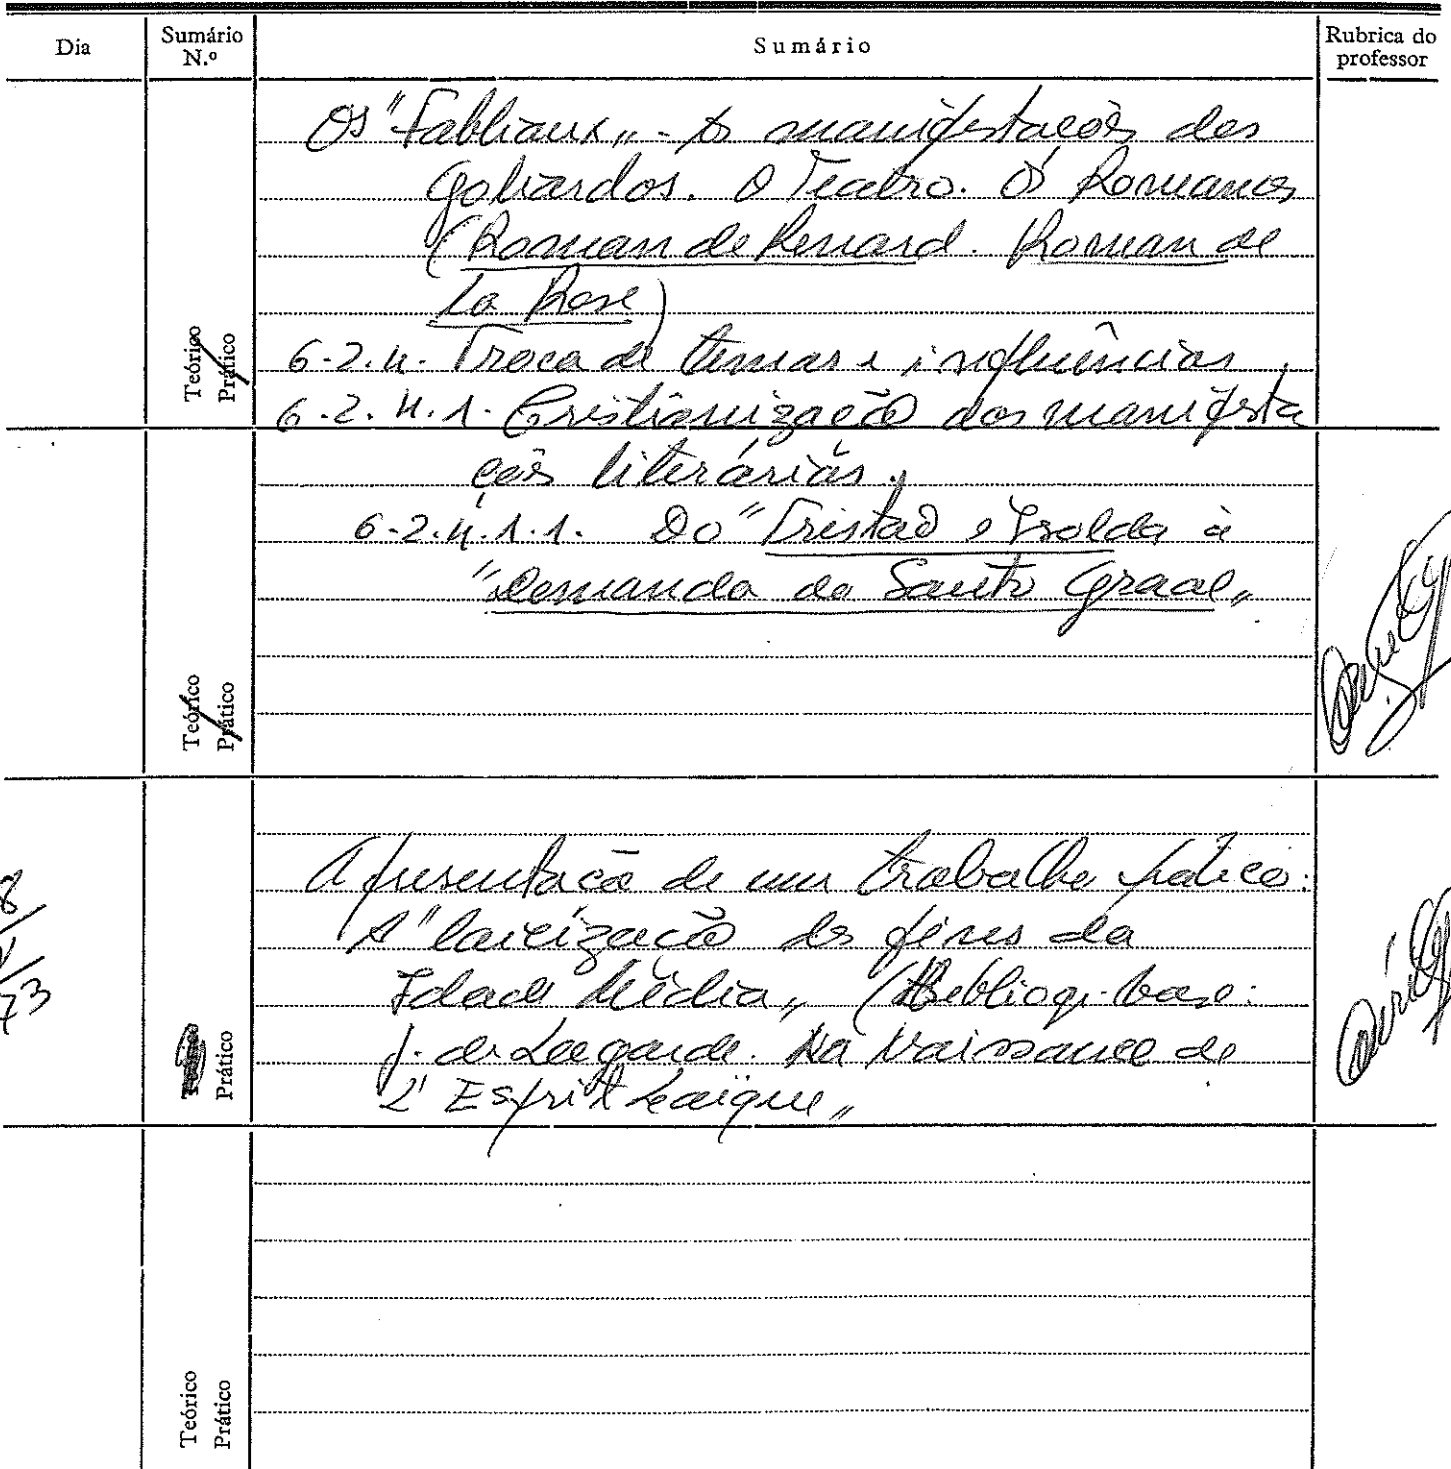 Dia
Sumário N.º
Sumário
Rubrica do professor
Os "Fabliaux„ - As manifestações dos
Goliardos. O Teatro. Os Romances
(Roman de Renard. Roman de
la Rose)
Teórico
Prático
6-2.4. Troca de temas e influências.
6-2.4.1. Cristianização das manifesta
ções literárias.
6-2.4.1.1. Do "Tristão e Isolda à
"Demanda do Santo Graal„
Teórico
Prático
Apresentação de um trabalho prático:
A "laicização dos fins da
Idade Média„ (Bibliog. base:
J. de Lagarde. La Naissance de
L'Esprit Laïque„
8
73
Prático
Teórico
Prático